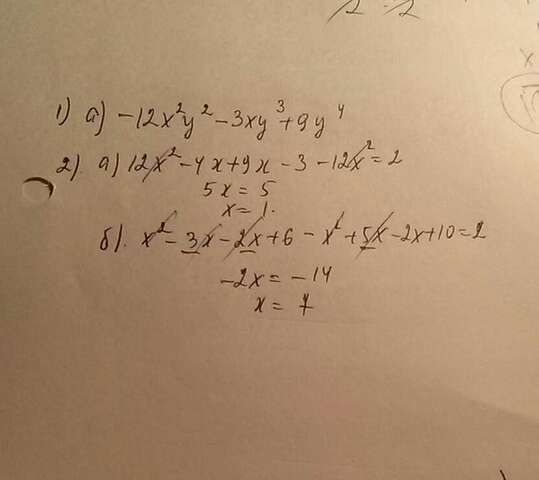 2 · 2
x
1) а) -12x²y² - 3xy³ + 9y⁴
2). а) 12x² - 4x + 9x - 3 - 12x² = 2
5x = 5
x = 1.
б). x² - 3x - 2x + 6 - x² + 5x - 2x + 10 = 2
-2x = -14
x = 7